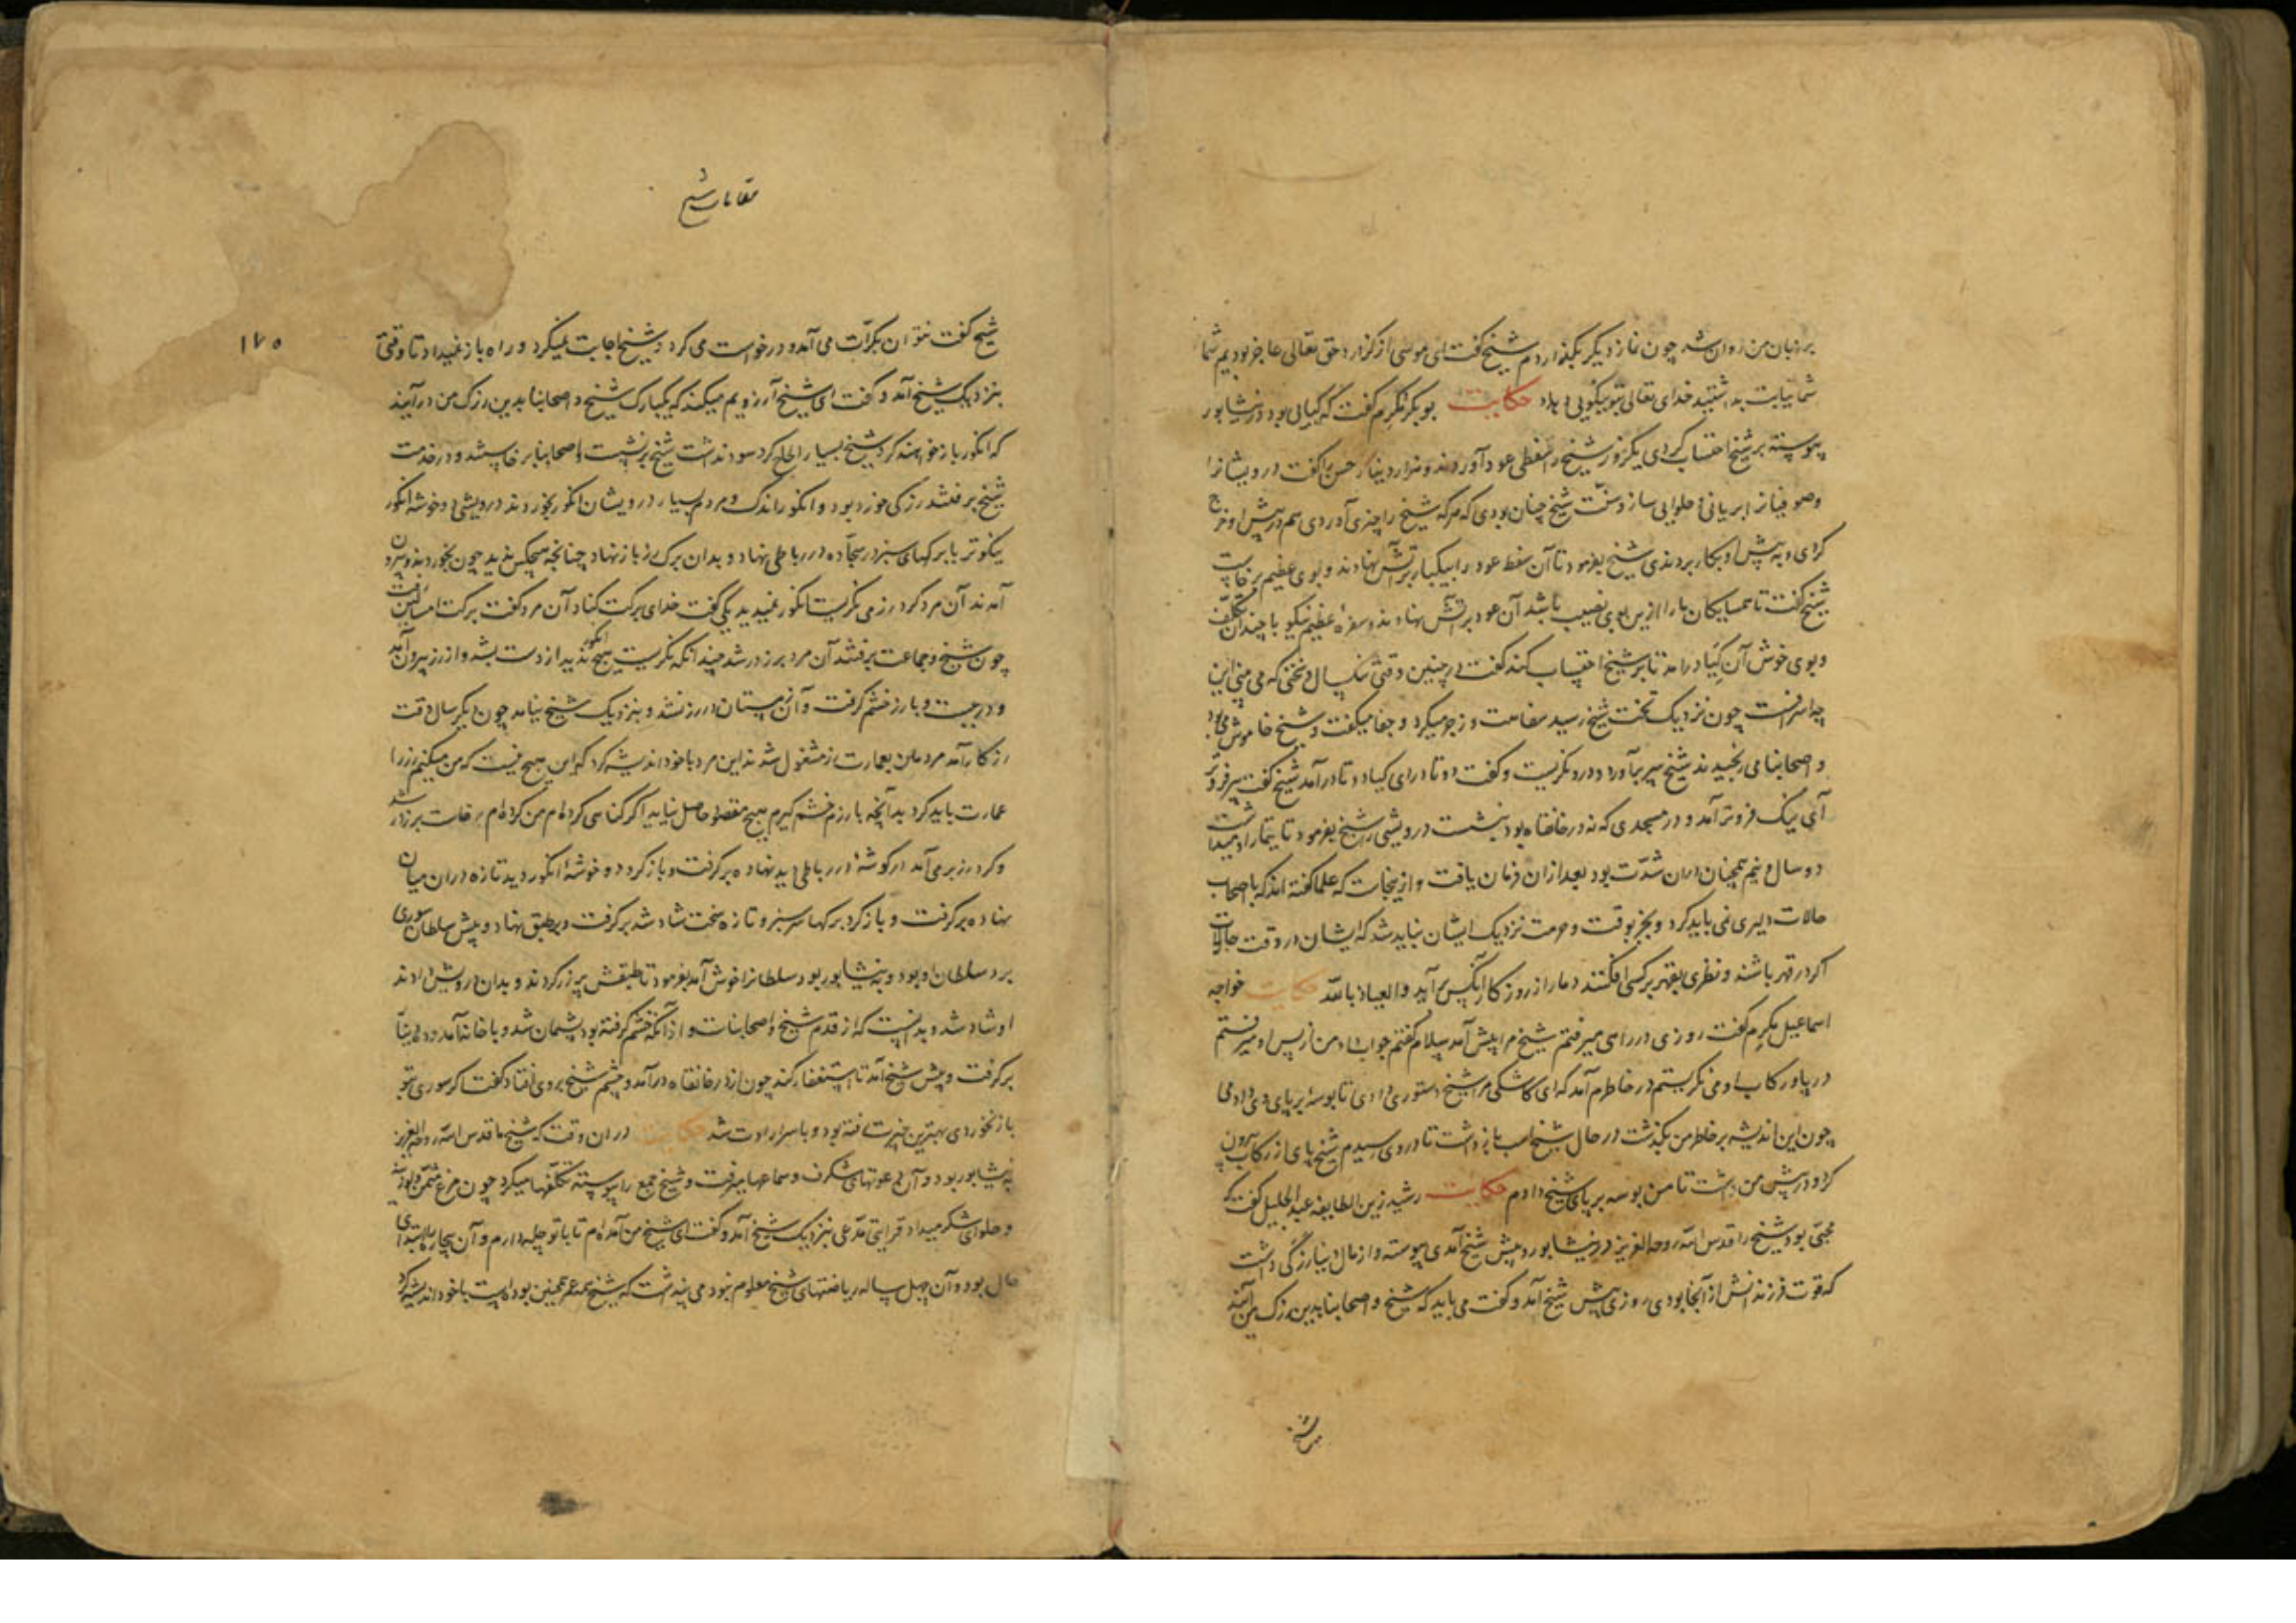 بر زبان من روان شد چون نماز دیگر بگذاردم شیخ گفت ای موسی از گزارد حق تعالی عاجز بودیم شما
شما نیابت بداشتید خدای تعالی بتو نیکویی دهاد حکایت بوبکر مکرم گفت که کیالی بود در نیشابور
پیوسته بر شیخ احتساب کردی یکروز شیخ را سفطی عود آوردند و هزار دینار حسن را گفت درویشانرا
وصوفیانرا بریانی و حلوایی ساز و سنت شیخ چنان بودی که هر که شیخ را چیزی آوردی هم در پیش او خرج
کردی و به پیش او بکار بردندی شیخ بفرمود تا آن سفط عود را بیکبار بر آتش نهادند و بوی عظیم برخاست
شیخ گفت تا همسایکان ما را ازین بوی نصیب باشد آن عود بر آتش نهادند و سفرۀ عظیم نیکو با چندان تکلف
و بوی خوش آن کیا درآمد تا بر شیخ احتساب کند گفت در چنین وقتی تنک سال و تختی که می بینی این
چه اسرافست چون نزدیک تخت شیخ رسید سفاهت و زجر میکرد و جفا میگفت و شیخ خاموش می بود
و اصحابنا می رنجیدند شیخ سر برآورد و درو نکریست و کفت دوتا درای کیا دوتا درآمد شیخ کفت سر فروتر
آی نیک فروتر آمد و در مسجدی که نه در خانقاه بود بنشست درویشی را شیخ بفرمود تا تیمار او میداشت
دو سال و نیم همچنان دران شدت بود بعد از ان فرمان یافت و ازینجاست که علما کفته اند که با اصحاب
حالات دلیری نمی باید کرد و بجز بوقت و حرمت نزدیک ایشان نباید شد که ایشان در وقت حالات
اکر در قهر باشند و نظری بقهر بر کسی افکنند دمار از روزکار آنکس برآید والعیاذ بالله حکایت خواجه
اسماعیل مکرم کفت روزی در راهی میرفتم شیخ مرا پیش آمد سلام گفتم جواب داد من از پس او میرفتم
در پا و رکاب او می نکریستم در خاطرم آمد که ای کاشکی مرا شیخ دستوری دادی تا بوسۀ بر پای وی دادمی
چون این اندیشه بر خاطر من بکذشت در حال شیخ اسب بازداشت تا در وی رسیدم شیخ پای از رکاب بیرون
کرد و در پیش من داشت تا من بوسه بر پای شیخ دادم حکایت رشید زین الطایفه عبد الجلیل کفت که
محبی بود شیخ را قدس الله روحه العزیز در نیشابور و پیش شیخ آمدی پیوسته و از مال دنیا رزکی داشت
که قوت فرزندانش از آنجا بودی روزی پیش شیخ آمد و کفت می باید که شیخ و اصحابنا بدین رزک من آیند
شیخ
مقامات شیخ
۱۷۵
شیخ گفت نتوان بکرات می آمد و درخواست می کرد و شیخ اجابت نمیکرد و راه باز نمیداد تا وقتی
بنزدیک شیخ آمد و گفت ای شیخ آرزویم میکند که یکبارک شیخ و اصحابنا بدین رزک من درآیند
که انکور بازخواهند کرد شیخ بسیار الحاح کرد سود نداشت شیخ برنشست و اصحابنا برخاستند و در خدمت
شیخ برفتند رزکی خورد بود و انکور اندک و مردم بسیار درویشان انکور بخوردند درویشی دو خوشه انکور
نیکوتر با برکهای سبز در سجاده در رباطی نهاد و بدان برک رز باز نهاد چنانچه هیچکس ندید چون بخوردند و بیرون
آمدند آن مرد کرد رز می نکریست انکور نمیدید یکی گفت خدای برکت کناد آن مرد کفت برکت امسالین رفت
چون شیخ و جماعت برفتند آن مرد بر رز در شد چندانکه نکریست هیچ انکور ندید از دست بشد و از رز بیرون آمد
و در ببست و با رز خشم گرفت و آن زمستان در رز نشد و بنزدیک شیخ نیامد چون دیگر سال وقت
رز کار آمد مردمان بعمارت رز مشغول شدند این مرد با خود اندیشه کرد که این هیچ نیست که من میکنم رز را
عمارت باید کرد بدانچه با رز خشم کیرم هیچ مقصود حاصل نیاید اکر کناهی کرده ام من کرده ام برخاست بر رز در شد
و کرد رز بر می آمد در کوشۀ در رباطی دید نهاده برگرفت و باز کرد دو خوشۀ انکور دید تازه دران میان
نهاده برگرفت و باز کرد برکها سبز و تازه سخت شاد شد برگرفت و بر طبق نهاد و پیش سلطان سوری
برد سلطان او بود و به نیشابور بود سلطانرا خوش آمد بفرمود تا طبقش پر زر کردند و بدان درویش دادند
او شاد شد و بدانست که از قدم شیخ و اصحابناست و از آنکه خشم گرفته بود پشیمان شد و با خانه آمد و دو دینار
برگرفت و پیش شیخ آمد تا استغفار کند چون از در خانقاه درآمد و چشم شیخ بر وی افتاد کفت اکر سوری بتو
باز نخوردی بهترین خیرت رفته بود و با سر ارادت شد حکایت دران وقت که شیخ ما قدس الله روحه العزیز
به نیشابور بود و آن دعوتهای شکرف و سماعها میرفت و شیخ جمع را پیوسته تکلفها میکرد چون مرغ مثمن و لوزینه
و حلوای شکر میداد قرایی مدعی بنزدیک شیخ آمد و گفت ای شیخ من آمده ام تا با تو چله دارم و آن بیچاره ابتدای
حال بود و آن چهل ساله ریاضتهای شیخ معلوم نبود می پنداشت که شیخ همه عمر همچنین بوده است با خود اندیشه کرد